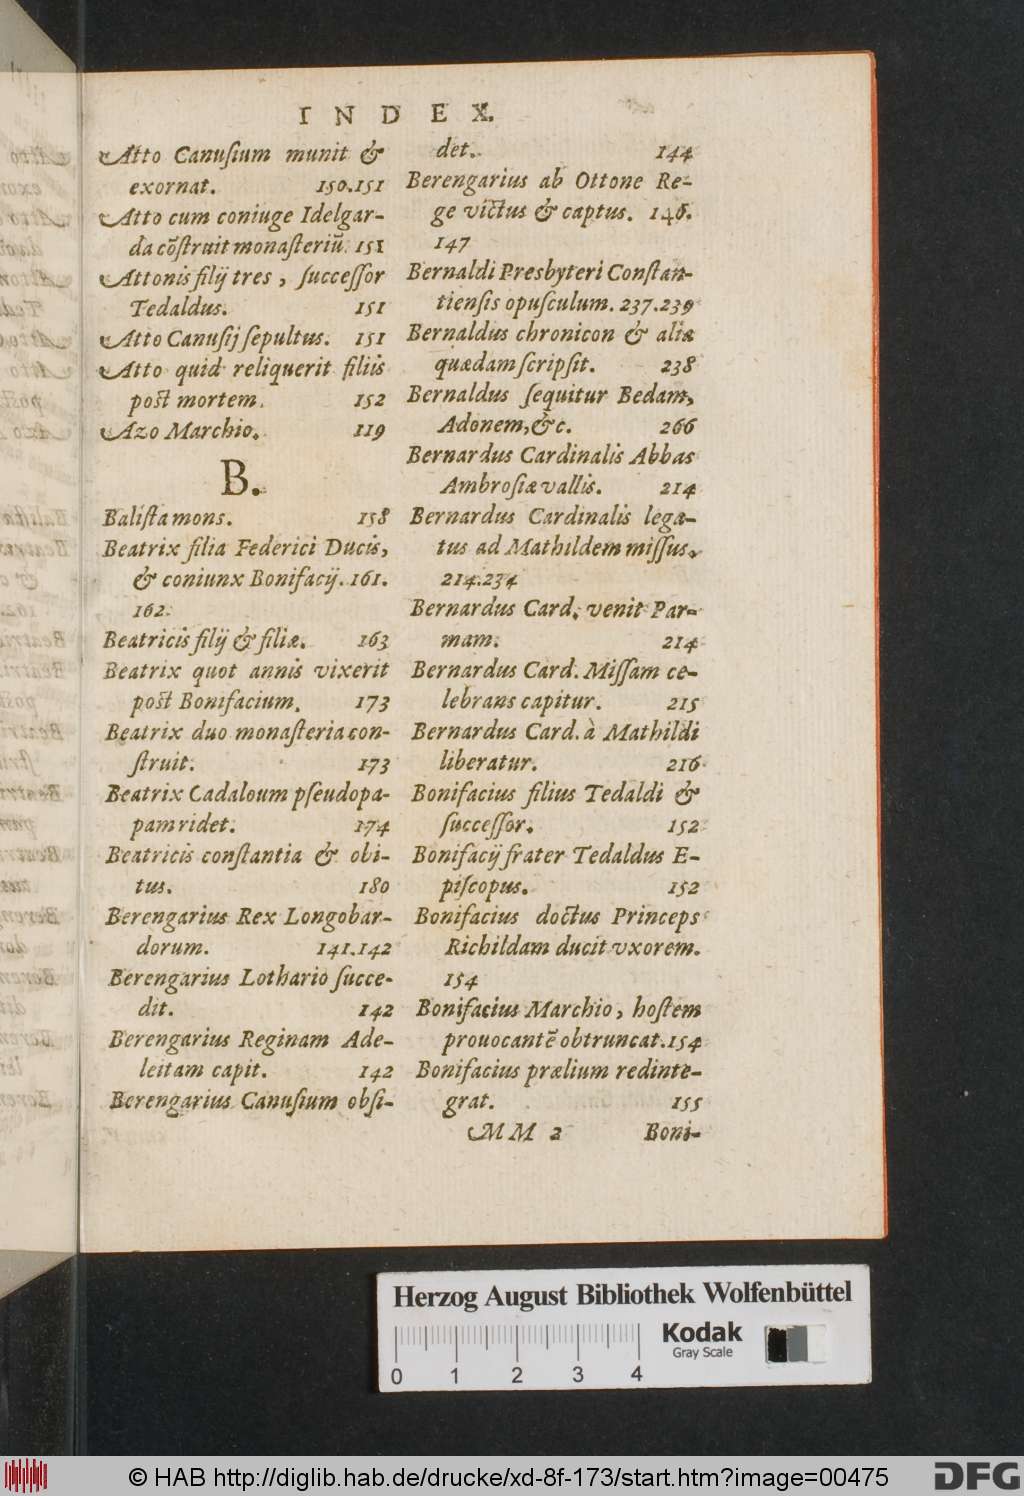 INDEX.
Atto Canuſium munit &
exornat. 150.151
Atto cum coniuge Idelgar-
da cõſtruit monaſteriũ. 151
Attonis filij tres, ſucceſſor
Tedaldus. 151
Atto Canuſij ſepultus. 151
Atto quid reliquerit filiis
post mortem. 152
Azo Marchio. 119
B.
Baliſta mons. 158
Beatrix filia Federici Ducis,
& coniunx Bonifacij. 161.
162.
Beatricis filij & filiæ. 163
Beatrix quot annis vixerit
post Bonifacium. 173
Beatrix duo monaſteria con-
ſtruit. 173
Beatrix Cadaloum pſeudopa-
pam ridet. 174
Beatricis conſtantia & obi-
tus. 180
Berengarius Rex Longobar-
dorum. 141.142
Berengarius Lothario ſucce-
dit. 142
Berengarius Reginam Ade-
leitam capit. 142
Berengarius Canuſium obſi-
det. 144
Berengarius ab Ottone Re-
ge victus & captus. 146.
147
Bernaldi Presbyteri Conſtan-
tienſis opuſculum. 237.239
Bernaldus chronicon & alia
quædam ſcripſit. 238
Bernaldus ſequitur Bedam,
Adonem, &c. 266
Bernardus Cardinalis Abbas
Ambroſiæ vallis. 214
Bernardus Cardinalis lega-
tus ad Mathildem miſſus.
214.234
Bernardus Card. venit Par-
mam. 214
Bernardus Card. Miſſam ce-
lebrans capitur. 215
Bernardus Card. à Mathildi
liberatur. 216
Bonifacius filius Tedaldi &
ſucceſſor. 152
Bonifacij frater Tedaldus E-
piſcopus. 152
Bonifacius doctus Princeps
Richildam ducit vxorem.
154
Bonifacius Marchio, hoſtem
prouocantẽ obtruncat. 154
Bonifacius prælium redinte-
grat. 155
MM 2 Boni-
Herzog August Bibliothek Wolfenbüttel
Kodak
Gray Scale
0 1 2 3 4
© HAB http://diglib.hab.de/drucke/xd-8f-173/start.htm?image=00475
DFG